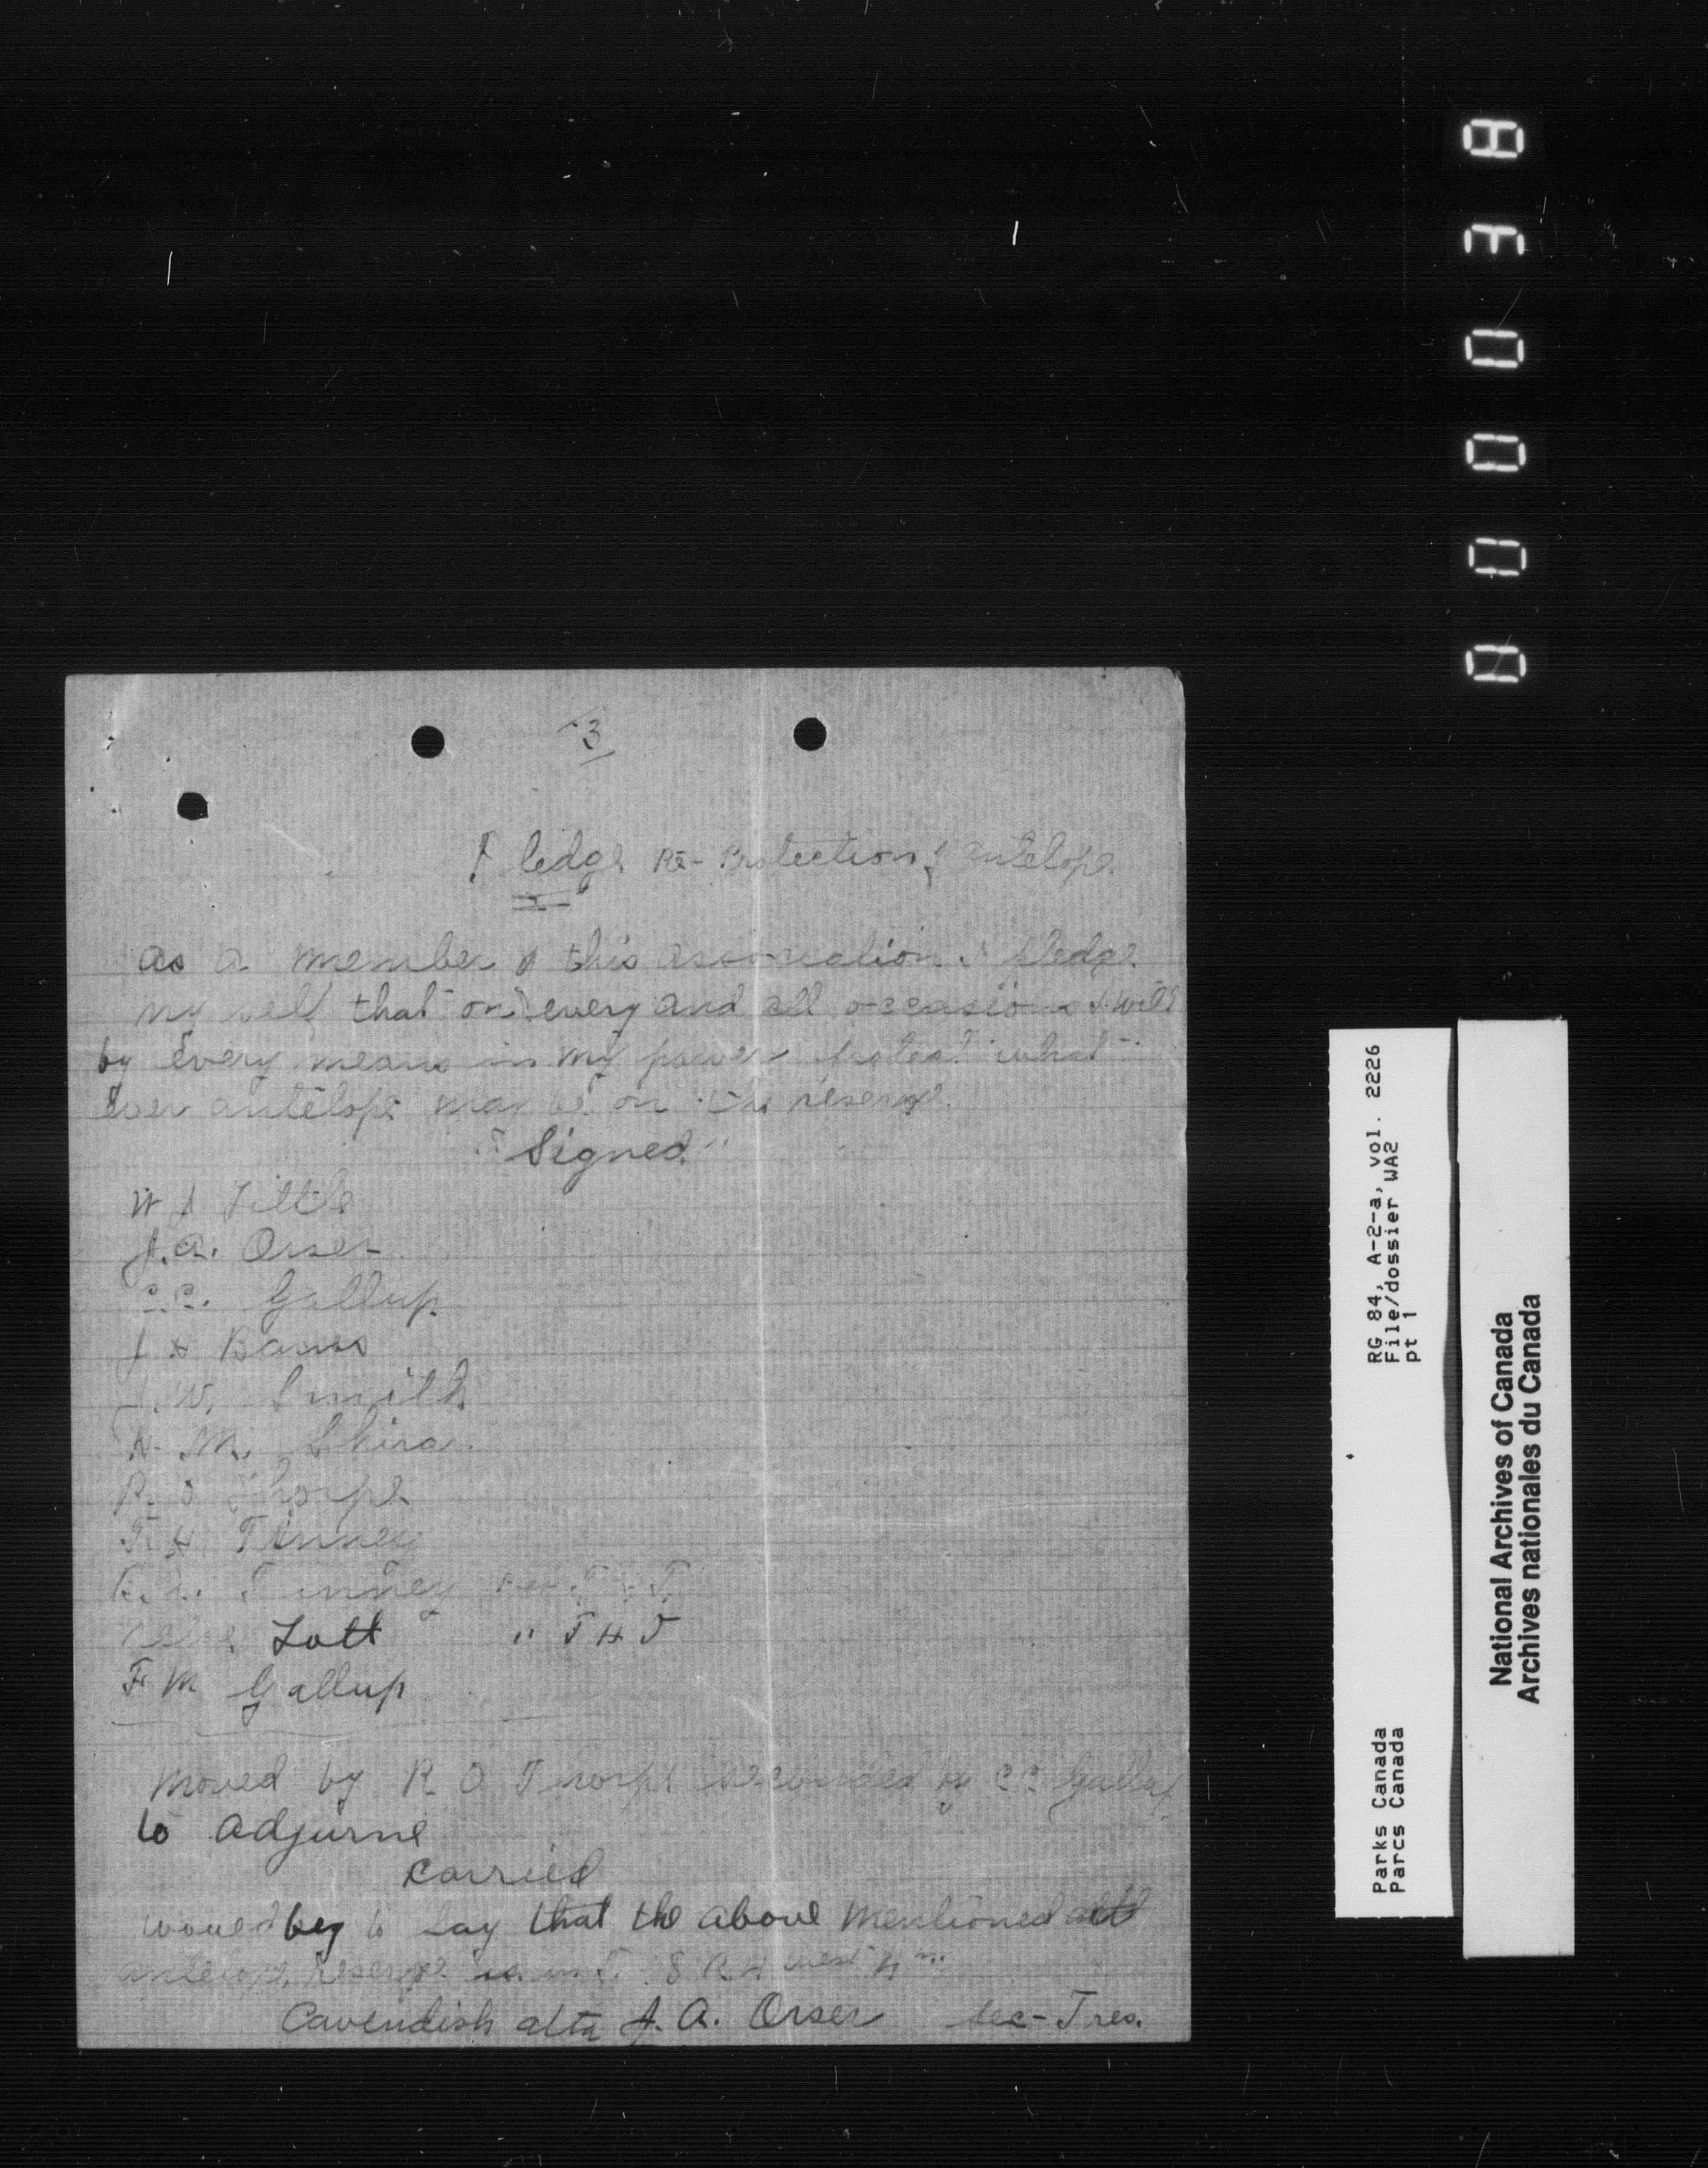 3
Pledge Re-Protection of antelope
as a member of this association I pledge
my self that on every and all occasions I will
by every means in my power protect what
ever antelope may be on the reserve.
"Signed"
W J Tittle
J.A. Orser
C.C. Gallup
J H Barns
J.W. Smith
H. M. Shira.
R. O Thorpe
F H Tinney
Tinney Per F H T
Lott " F H T
F M Gallup
moved by R O Thorpe seconded by CC Gallup
to adjurne
carried
would beg to say that the above mentioned
antelope reserve is in 8 R 4 west 4 m
Cavendish alta J. A. Orser Sec-Tres.
000038
RG 84, A-2-a, vol. 2226
File/dossier WA2
pt 1
Parks Canada
Parcs Canada
National Archives of Canada
Archives nationales du Canada